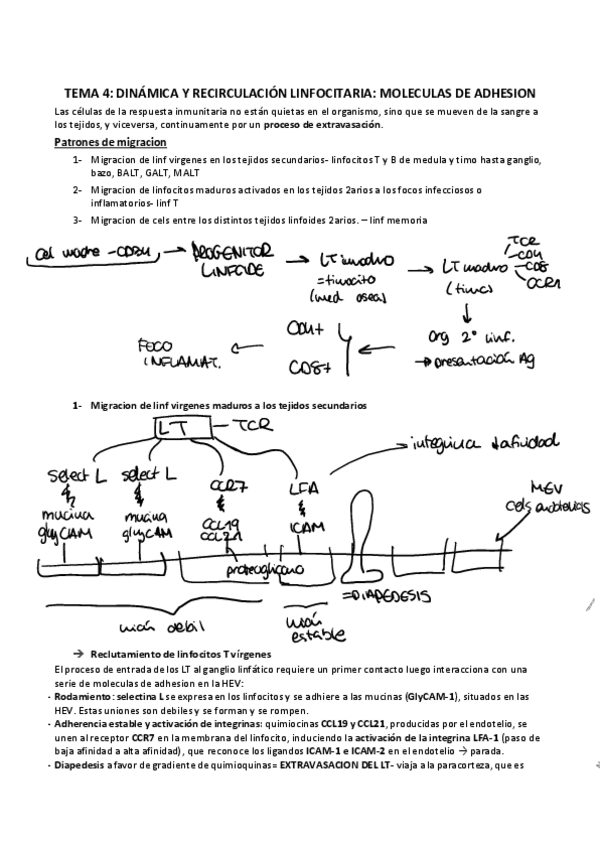 TEMA 4: DINÁMICA Y RECIRCULACIÓN LINFOCITARIA: MOLECULAS DE ADHESION
Las células de la respuesta inmunitaria no están quietas en el organismo, sino que se mueven de la sangre a
los tejidos, y viceversa, continuamente por un proceso de extravasación.
Patrones de migracion
1- Migracion de linf virgenes en los tejidos secundarios- linfocitos T y B de medula y timo hasta ganglio,
bazo, BALT, GALT, MALT
2- Migracion de linfocitos maduros activados en los tejidos 2arios a los focos infecciosos o
inflamatorios- linf T
3- Migracion de cels entre los distintos tejidos linfoides 2arios. – linf memoria
cel madre - CD34 → PROGENITOR
LINFOIDE → LT inmaduro
=timocito
(med osea) → LT maduro
(timo)
TCR
CD4
CD8
CCR7
org 2º linf.
→ presentación Ag
CD4+
CD8+
FOCO
INFLAMAT.
1- Migracion de linf virgenes maduros a los tejidos secundarios
LT - TCR
→ integrina ↓afinidad
select L select L CCR7 LFA
mucina
glyCAM
mucina
glyCAM
CCL19
CCL21
ICAM
HEV
proteoglicano
=DIAPEDESIS
unión debil
unión
estable
→ Reclutamiento de linfocitos T vírgenes
El proceso de entrada de los LT al ganglio linfático requiere un primer contacto luego interacciona con una
serie de moleculas de adhesion en la HEV:
- Rodamiento: selectina L se expresa en los linfocitos y se adhiere a las mucinas (GlyCAM-1), situados en las
HEV. Estas uniones son debiles y se forman y se rompen.
- Adherencia estable y activación de integrinas: quimiocinas CCL19 y CCL21, producidas por el endotelio, se
unen al receptor CCR7 en la membrana del linfocito, induciendo la activación de la integrina LFA-1 (paso de
baja afinidad a alta afinidad), que reconoce los ligandos ICAM-1 e ICAM-2 en el endotelio → parada.
- Diapedesis a favor de gradiente de quimioquinas= EXTRAVASACION DEL LT- viaja a la paracorteza, que es